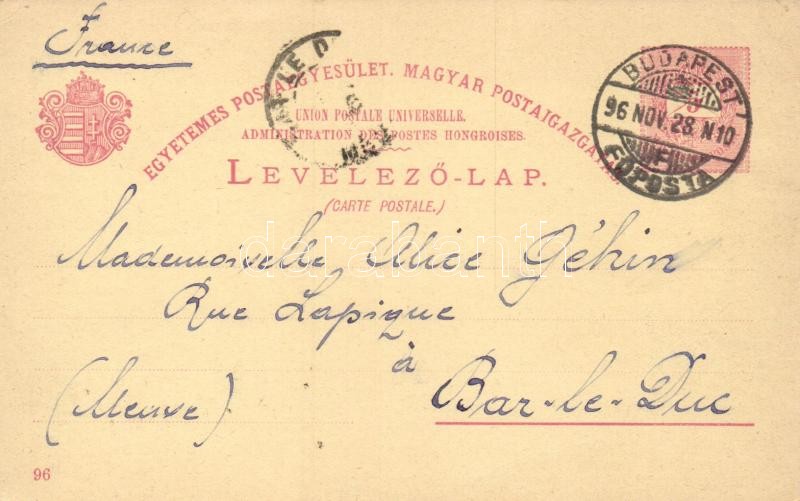 France
EGYETEMES POSTAEGYESÜLET. MAGYAR POSTAIGAZGATÁS
UNION POSTALE UNIVERSELLE.
ADMINISTRATION DES POSTES HONGROISES.
LEVELEZŐ-LAP.
(CARTE POSTALE.)
BUDAPEST
96 NOV. 28. N10
FŐPOSTA
Mademoiselle Alice Géhin
Rue Lapique
à
(Meuse) Bar-le-Duc
96
darabanth